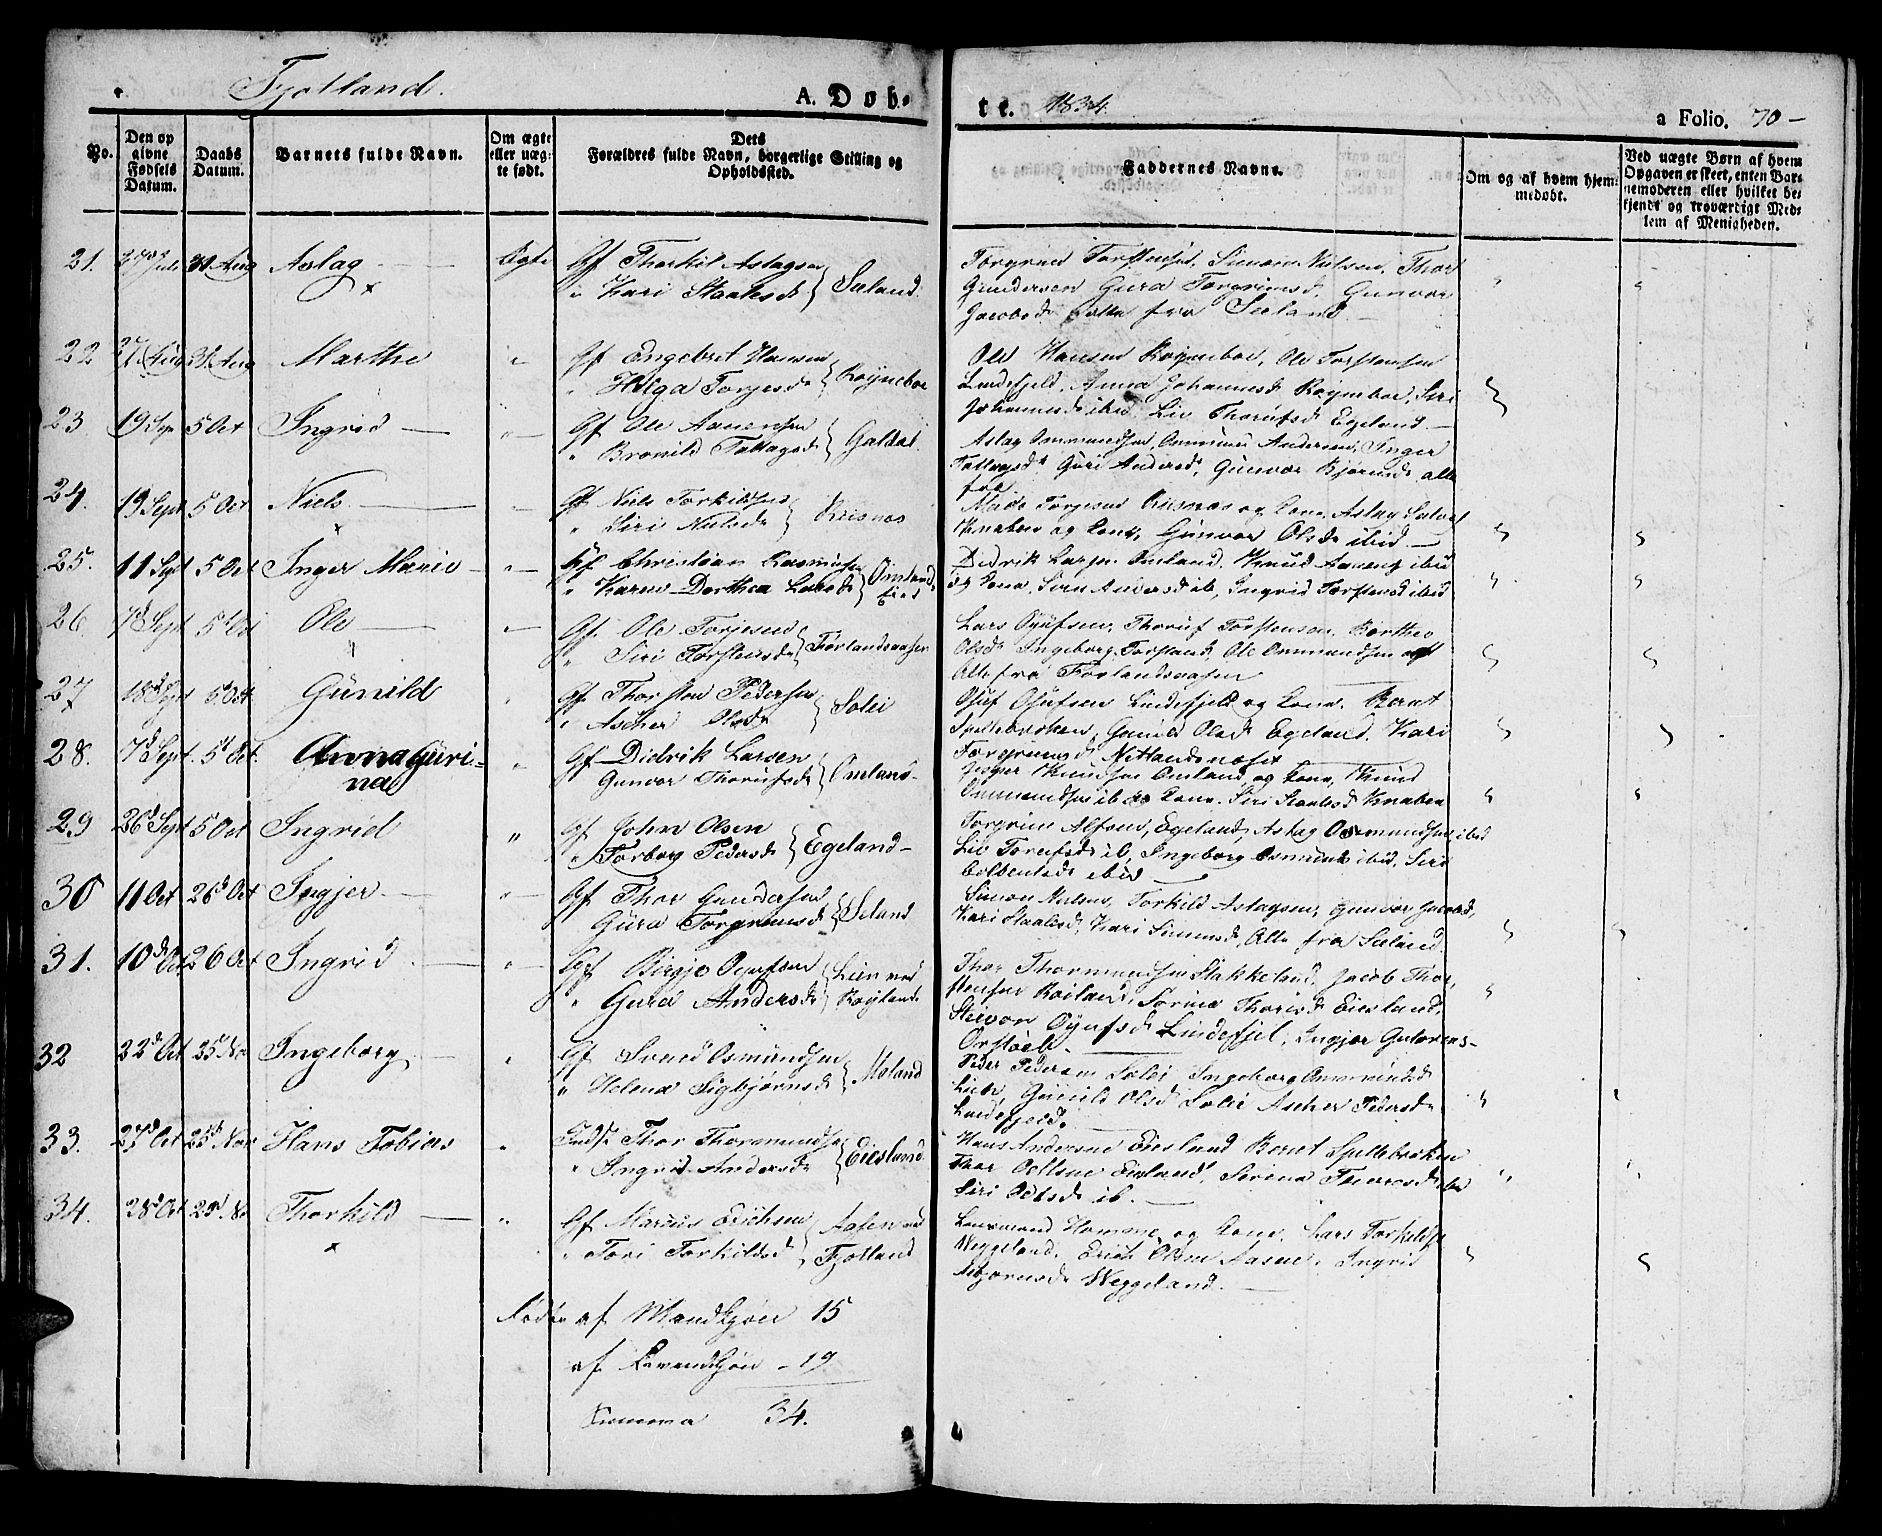 Fjotland.
A. Døb-
te. 1834.
a Folio. 70 -
No.
Den op
givne
Fødsels
Datum.
Daabs
Datum.
Barnets fulde Navn.
Om ægte
eller uæg-
te født.
Dets
Forældres fulde Navn, borgerlige Stilling og
Opholdssted.
Faddernes Navne.
Om og af hvem hjem-
medøbt.
Ved uægte Børn af hvem
Opgaven er skeet, enten Bar-
nemoderen eller hvilket be-
kjendt og troværdigt Med-
lem af Menigheden.
21. 27 Juli 31 Aug Aslag Ægte Gf Thorkil Aslagsen
" Kari Staalesd } Sæland
Torgrim Torstensen, Simon Nielsen, Thor
Gundersen Gura Torgrimsd, Gunvor
Jacobsd alle fra Sæland
22 Aug 31 Aug Marthe Gf Engebret Hansen
" Helga Torjesd } Røynebøe
Ole Hansen Røynebøe, Ole Torstensen
Lindefjeld, Anna Johannesd Røynebøe, Siri
Johannesd ibid, Liv Thorufsd Egeland
23 19 Sep 5 Oct Ingrid Gf Ole Aanensen
" Bronild Tallagsd } Galdal
Aslag Ommundsen, Ommund Andersen, Inger
Tallagsd, Guri Andersd, Gunvor Bjørnsd alle
fra
24. 19 Sept 5 Oct Niels Gf Niels Torkildsen
" Siri Nielsd } Risnes
Torjesen Risnes og Kone, Aslag
Knaben og Kone, Gunvor Olsd ibid
25. 11 Sept 5 Oct Inger Marie Gf Christian Rasmusen
" Karen Dorthea Larsd } Omland
Eie
Didrik Larsen Omland, Knud Aanens ibid
og Kone, Siren Andersd ib, Ingrid Torstensd ibid
26 7d Sept 5d Oct Ole Gf. Ole Torjesen
" Siri Torstensd } Førlandsaasen
Lars Oyufsen, Thoruf Torstensen, Berthe
Olsd Ingeborg Torstensd, Ole Ommundsen
Alle fra Førlandsaasen
27 18d Sept 5 Oct Günild Gf Thorsten Pedersen
" Ascher Olsd } Solei
Ojuf Ojufsen Lindefjeld og Kone, Bernt
Spillebroken, Gunild Olsd Egeland, Kari
Torgrimsd Netlandsnæset
28. 7d Sept. 5d Oct. Anna Guri-
na Gf Didrik Larsen
Gunvor Thorufsd } Omland
Jesper Knudsen Omland og Kone, Knud
Ommundsen ib og Kone, Siri Staalesd Knaben
29 26d Sept 5 Oct Ingrid " Gf John Olsen
" Torborg Pedersd } Egeland
Torgrim Alfsen, Egeland, Aslag Osmundsen ibid
Liv Torufsd ib, Ingeborg Osmunds ibid, Siri
ibid
30 11 Oct 26d Oct Ingjer Gf Thor Gundersen
Gura Torgrimsd } Seland
Simon Nielsen, Torkild Aslagsen, Gunvor Jacobsd,
Kari Staalesd, Kari Simonsd, Alle fra Sæland
31. 10d Oct 26 Oct Ingrid Gf Birgje Ojufsen
" Gura Andersd } Lien ved
Røyland
Thor Thormundsen Stakkeland, Jacob Thor-
stensen Roiland, Sørine Thorisd Eiesland,
Steinvor Oyufsd Lindefjel, Ingjer Gutorms-
32 22d Oct 25 Nov Ingeborg Gf Svend Osmundsen
" Helena Sigbjørnsd } Moland
Peder Pedersen Solei Ingeborg Ommundsd
Gunild Olsd Solei Ascher Pedersd
Lindefjeld.
33. 27d Oct 25d Nov Hans Tobias Inds. Thor Thormundsen
" Ingrid Andersd } Eiesland
Hans Andersen Eiesland Bernt Spillebroken
Thor Oellsen Eiesland, Serina Toresd ibid
Siri Oellsd ib.
34. 28d Oct 25d No Thorkild " Gf Marius Erichsen
" Tori Torkildsd } Aasen ved
Fjotland
Lensmand Homme og Kone, Lars Torkilds
Veggeland, Erich Olsen Aasen, Ingrid
Asbjørnsd Veggeland.
Fødte af Mandkjøn 15
af Qvindekjøn - 19
Summa 34.